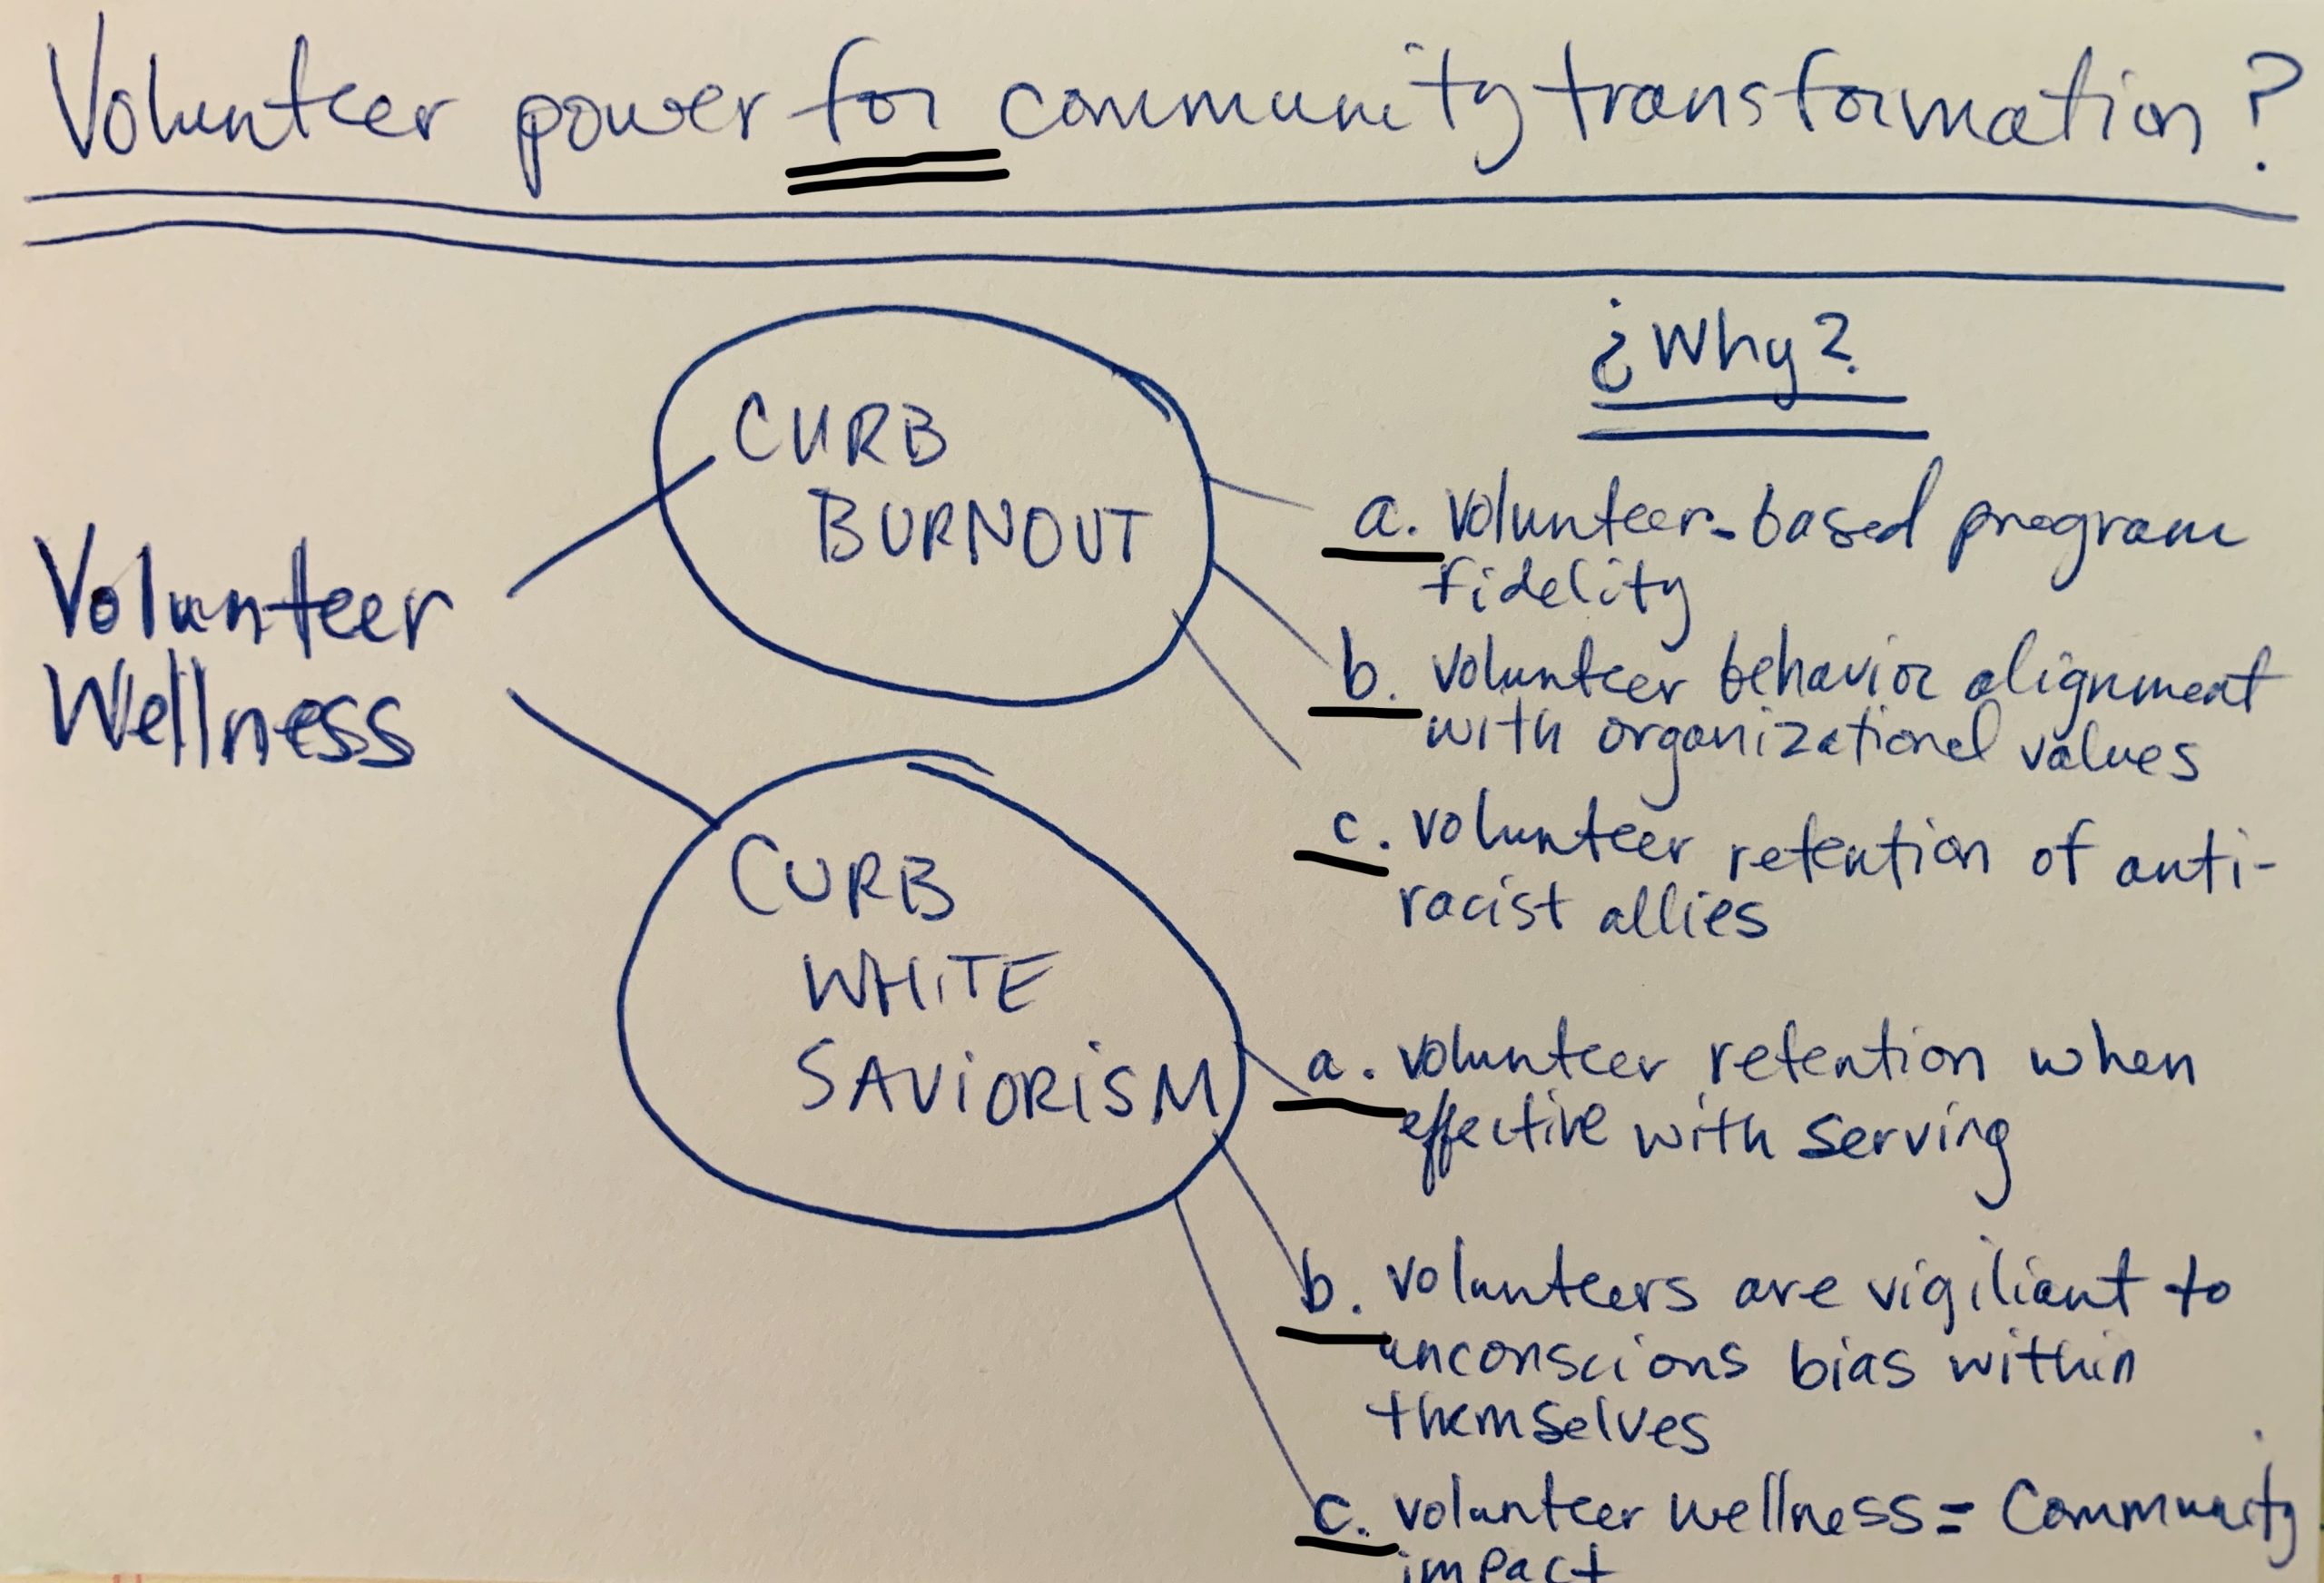 Volunteer power for community transformation?
¿Why?
Volunteer
Wellness
CURB
BURNOUT
a. volunteer-based program
fidelity
b. volunteer behavior alignment
with organizational values
c. volunteer retention of anti-
racist allies
CURB
WHITE
SAViORiSM
a. volunteer retention when
effective with serving
b. volunteers are vigiliant to
unconscious bias within
themselves
c. volunteer wellness = Community
impact